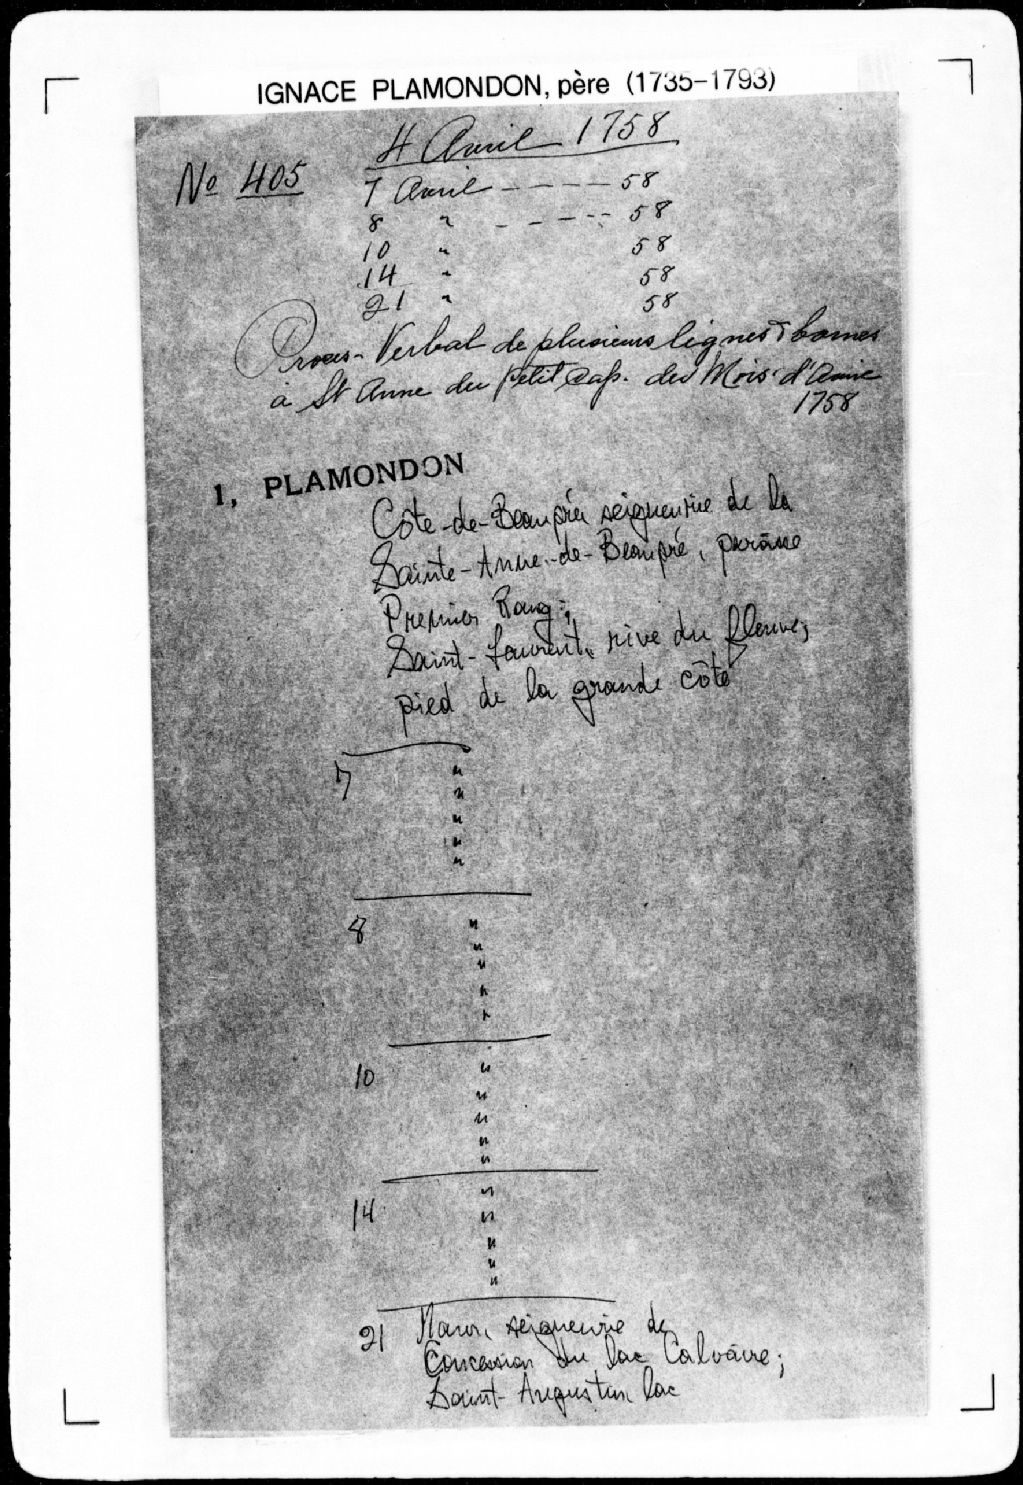 IGNACE PLAMONDON, père (1735-1793)
4 Avril 1758
No 405
7 Avril ----- 58
8 " ----- 58
10 " 58
14 " 58
21 " 58
Proces-Verbal de plusieurs lignes & bornes
à St Anne du petit Cap. du Mois d'Avril
1758
1, PLAMONDON
Côte-de-Beaupré, seigneurie de la
Sainte-Anne-de-Beaupré, paroisse
Premier Rang;
Saint-Laurent, rive du fleuve,
pied de la grande côte
7 "
"
"
"
"
8 "
"
"
"
"
10 "
"
"
"
"
14 "
"
"
"
"
21 Maur, seigneurie de
Concession du lac Calvaire;
Saint-Augustin, lac